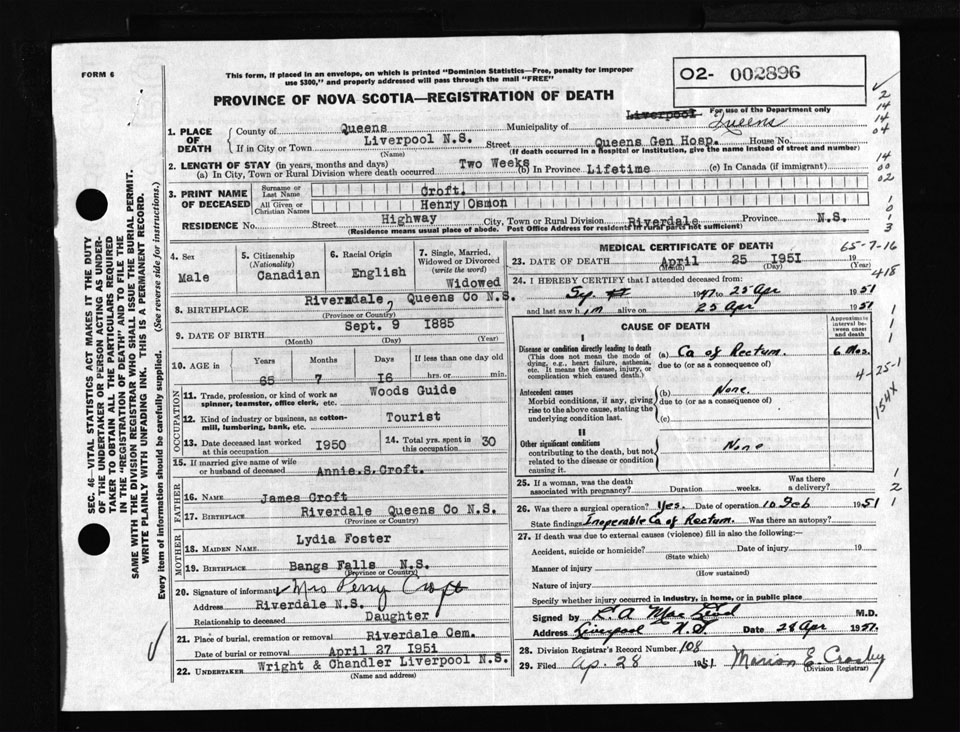 FORM 6
This form, if placed in an envelope, on which is printed "Dominion Statistics—Free, penalty for improper
use $300," and properly addressed will pass through the mail "FREE"
O2- 002896
PROVINCE OF NOVA SCOTIA—REGISTRATION OF DEATH
For use of the Department only
Liverpool
Queens
1. PLACE OF DEATH
County of Queens Municipality of
If in City or Town Liverpool N.S. Street Queens Gen Hosp. House No.
(Name) (If death occurred in a hospital or institution, give the name instead of street and number)
2. LENGTH OF STAY (in years, months and days)
(a) In City, Town or Rural Division where death occurred Two Weeks (b) In Province Lifetime (c) In Canada (if immigrant)
3. PRINT NAME OF DECEASED
Surname or Last Name Croft.
All Given or Christian Names Henry Osmon
RESIDENCE No. Street Highway City, Town or Rural Division Riverdale Province N.S.
(Residence means usual place of abode. Post Office Address for residents in rural parts not sufficient)
4. Sex
Male
5. Citizenship
(Nationality)
Canadian
6. Racial Origin
English
7. Single, Married,
Widowed or Divorced
(write the word)
Widowed
8. BIRTHPLACE Riverdale, Queens Co N.S.
(Province or Country)
9. DATE OF BIRTH Sept. 9 1885
(Month) (Day) (Year)
10. AGE in
Years Months Days If less than one day old
65 7 I6 hrs. or min.
OCCUPATION
11. Trade, profession, or kind of work as
spinner, teamster, office clerk, etc. Woods Guide
12. Kind of industry or business, as cotton-
mill, lumbering, bank, etc. Tourist
13. Date deceased last worked
at this occupation I950
14. Total yrs. spent in
this occupation 30
15. If married give name of wife
or husband of deceased Annie.S.Croft.
FATHER
16. NAME James Croft
17. BIRTHPLACE Riverdale Queens Co N.S.
(Province or Country)
MOTHER
18. MAIDEN NAME Lydia Foster
19. BIRTHPLACE Bangs Falls N.S.
(Province or Country)
20. Signature of informant Mrs Perry Croft
Address Riverdale N.S.
Relationship to deceased Daughter
21. Place of burial, cremation or removal Riverdale Cem.
Date of burial or removal April 27 I95I
22. UNDERTAKER Wright & Chandler Liverpool N.S.
(Name and address)
MEDICAL CERTIFICATE OF DEATH
65-7-16
23. DATE OF DEATH April 25 I95I 19
(Month) (Day) (Year)
24. I HEREBY CERTIFY that I attended deceased from:
1947 to 25 Apr 1951
and last saw him alive on 25 Apr 1951
CAUSE OF DEATH
Approximate
interval between
onset
and death
I
Disease or condition directly leading to death
(This does not mean the mode of
dying, e.g., heart failure, asthenia,
etc. It means the disease, injury, or
complication which caused death.)
(a) Ca of Rectum. 6 Mos.
due to (or as a consequence of)
Antecedent causes
Morbid conditions, if any, giving
rise to the above cause, stating the
underlying condition last.
(b) None.
due to (or as a consequence of)
(c)
II
Other significant conditions
contributing to the death, but not
related to the disease or condition
causing it.
None
25. If a woman, was the death
associated with pregnancy? Duration weeks. Was there
a delivery?
26. Was there a surgical operation? Yes. Date of operation 10 Feb 1951
State findings Inoperable Ca of Rectum. Was there an autopsy?
27. If death was due to external causes (violence) fill in also the following:—
Accident, suicide or homicide? Date of injury 19
(State which)
Manner of injury
(How sustained)
Nature of injury
Specify whether injury occurred in industry, in home, or in public place
Signed by L. A. MacLeod M.D.
Address Liverpool N.S. Date 28 Apr 1951.
28. Division Registrar's Record Number 108
29. Filed Ap. 28 1951 Marion E. Crosby
(Division Registrar)
2
14
14
04
14
00
02
1
0
1
3
418
1
1
1
4-25-1
154X
1
2
1
SEC. 46—VITAL STATISTICS ACT MAKES IT THE DUTY
OF THE UNDERTAKER OR PERSON ACTING AS UNDER-
TAKER TO OBTAIN ALL THE PARTICULARS REQUIRED
IN THE "REGISTRATION OF DEATH" AND TO FILE THE
SAME WITH THE DIVISION REGISTRAR WHO SHALL ISSUE THE BURIAL PERMIT.
WRITE PLAINLY WITH UNFADING INK. THIS IS A PERMANENT RECORD.
Every item of information should be carefully supplied. (See reverse side for instructions.)